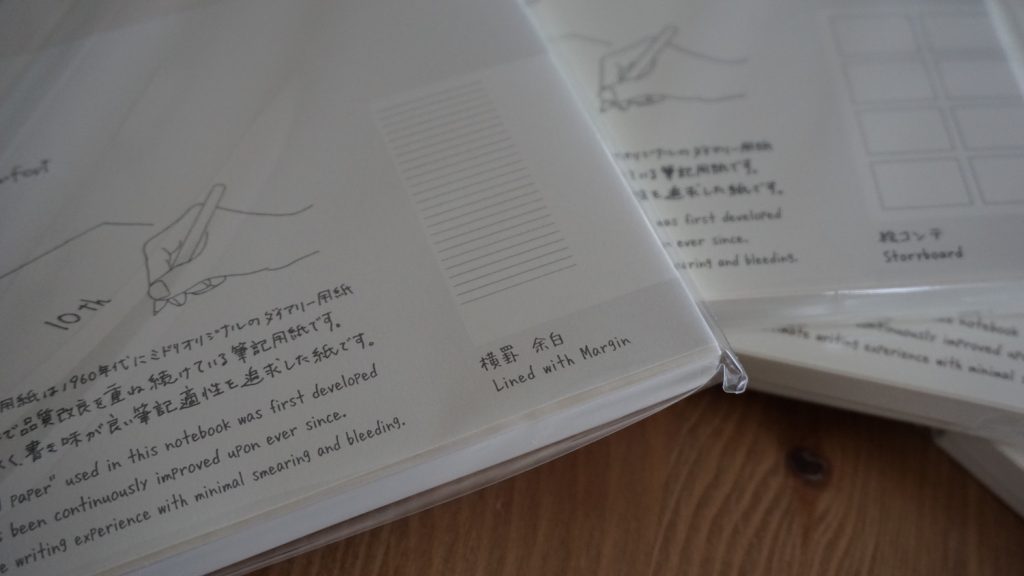 10th
用紙は1960年代にミドリオリジナルのダイアリー用紙
で品質改良を重ね続けている筆記用紙です。
く、書き味が良い筆記適性を追求した紙です。
paper" used in this notebook was first developed
been continuously improved upon ever since.
writing experience with minimal smearing and bleeding.
横罫 余白
Lined with Margin
ダイアリー用紙
ている筆記用紙です。
を追求した紙です。
was first developed
ever since.
and bleeding.
絵コンテ
Storyboard
notebook
continuously improved upon
writing experience with minimal